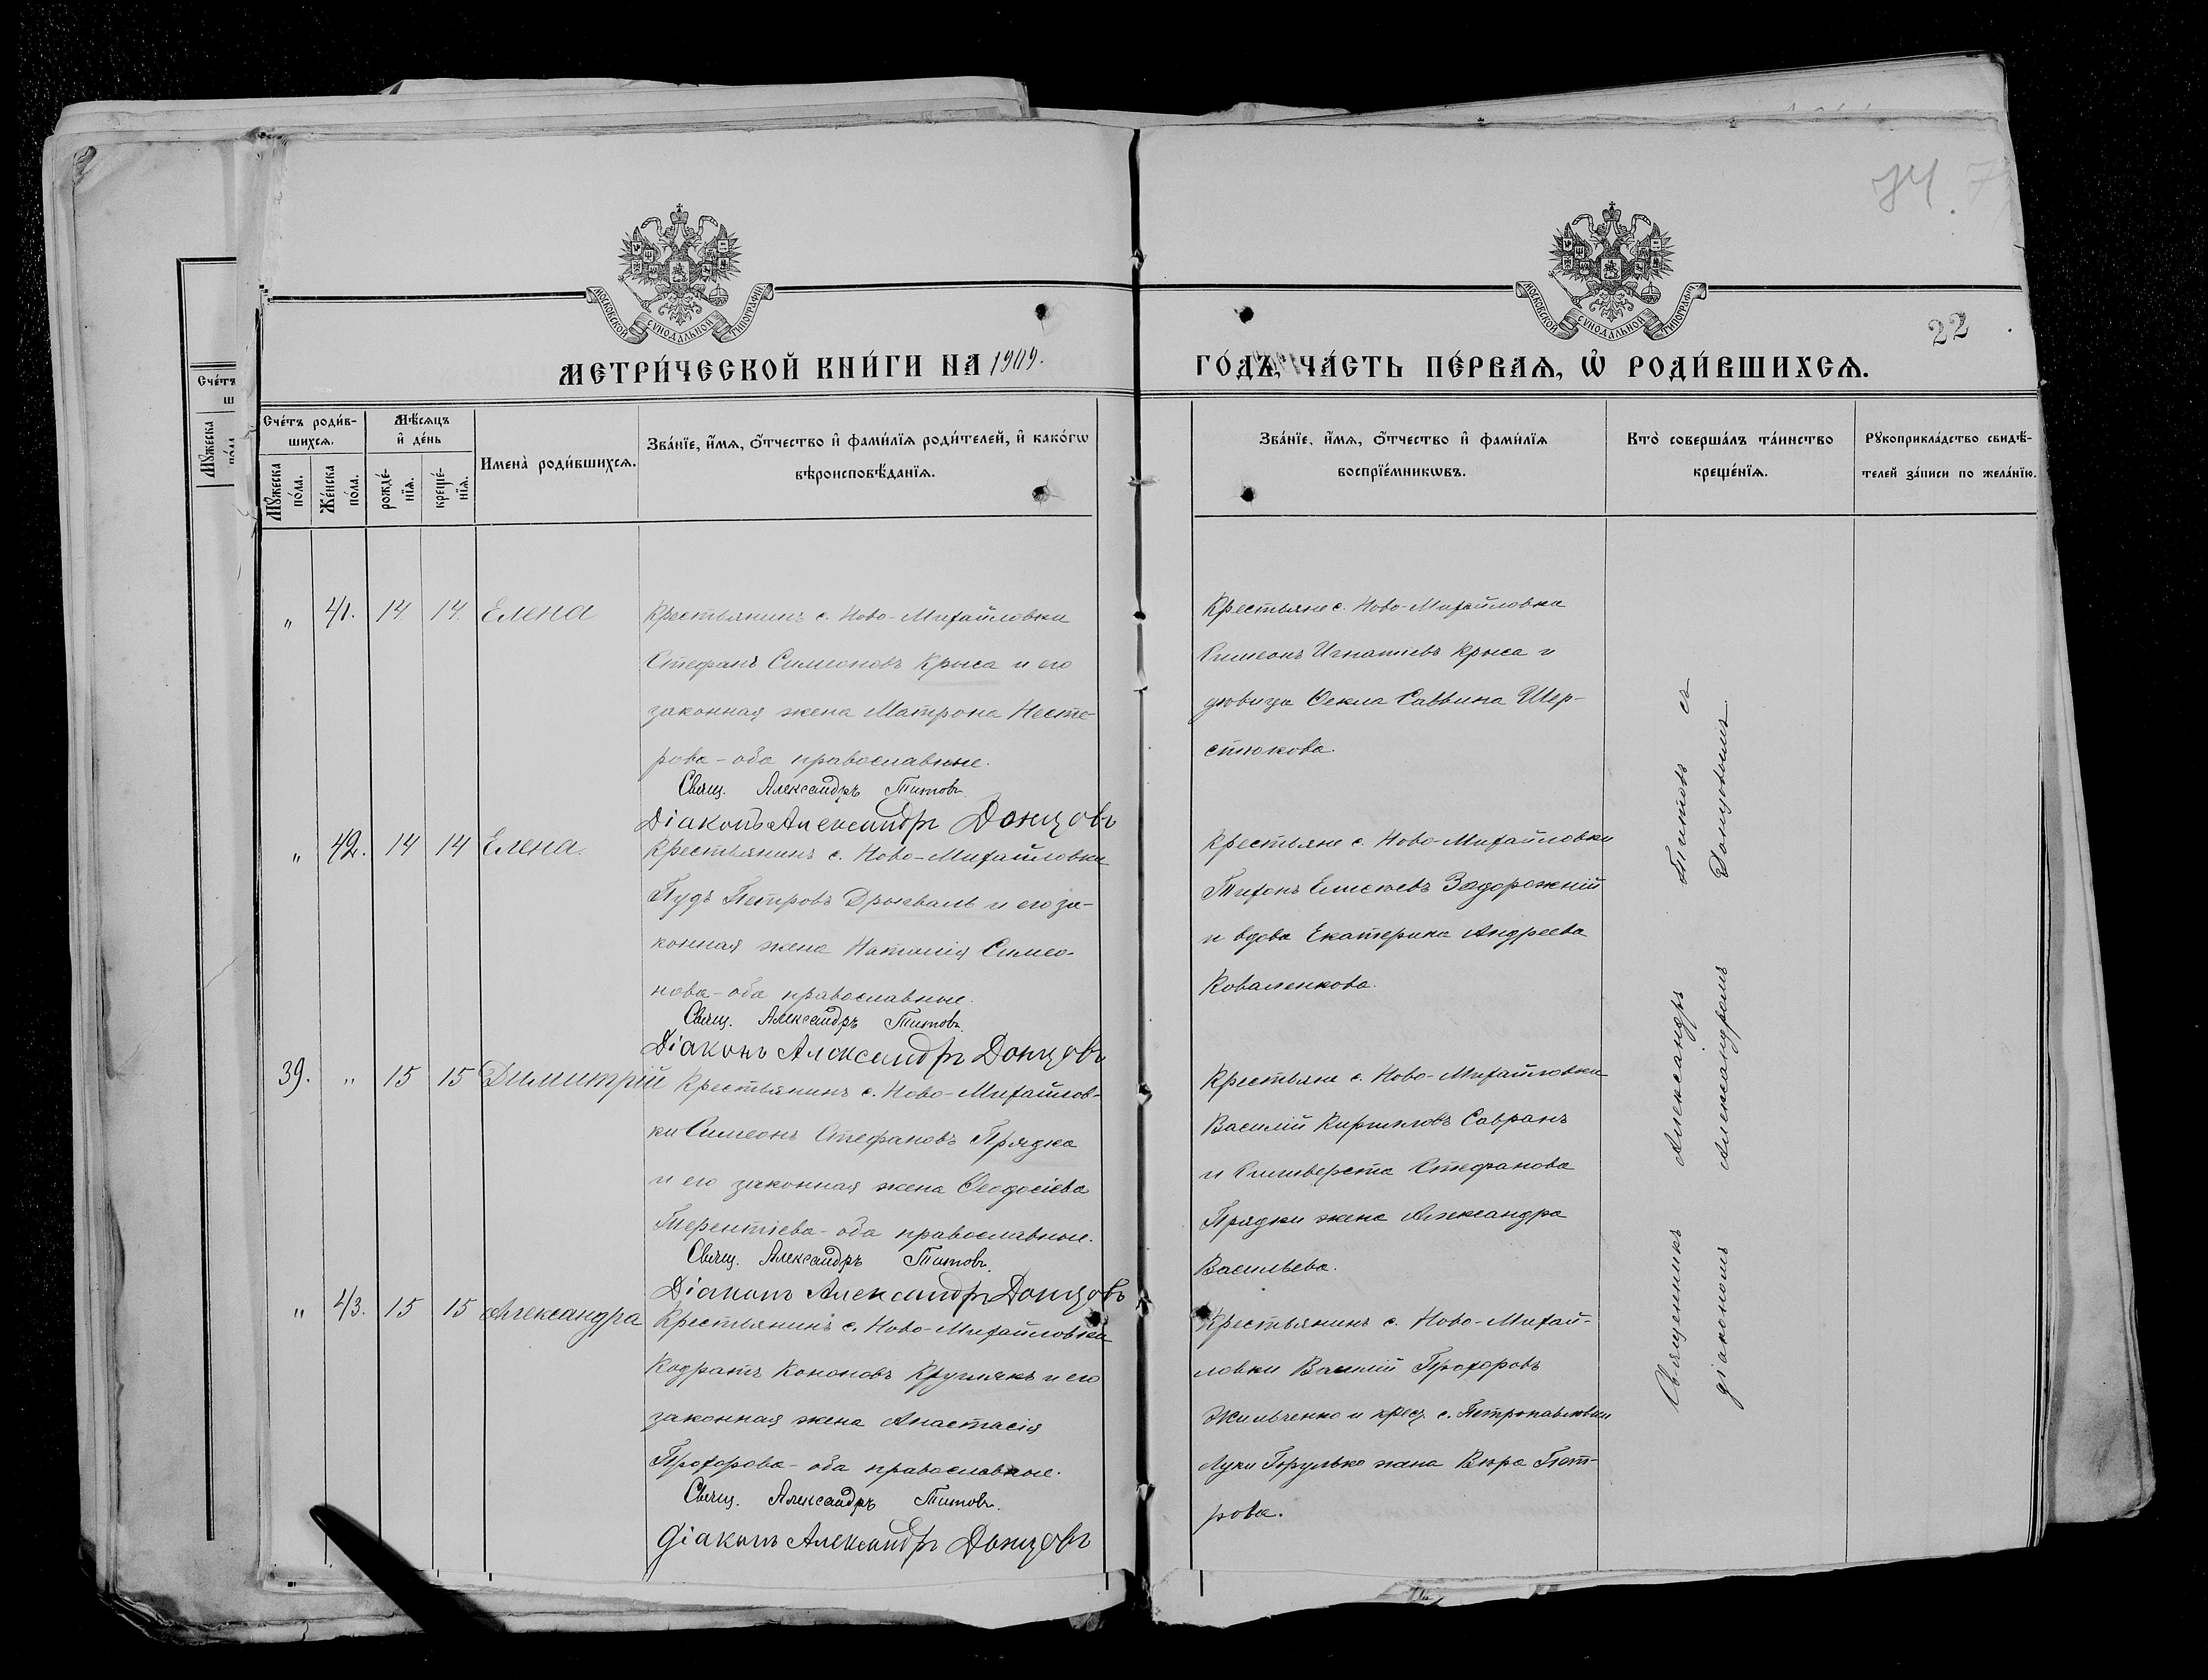 74
22
МОСКОВСКОЙ СѴНОДАЛЬНОЙ ТИПОГРАФІИ
МОСКОВСКОЙ СѴНОДАЛЬНОЙ ТИПОГРАФІИ
МЕТРИ́ЧЕСКОЙ КНИ́ГИ НА 1909.
ГО́ДЪ, ЧА́СТЬ ПЕ́РВАѦ, Ѡ҆ РОДИ́ВШИХСѦ.
Сче́тъ роди́в-
шихсѧ.
Мꙋ́жеска
по́ла.
Же́нска
по́ла.
Мѣ́сѧцъ
и҆ де́нь
рожде́-
нїѧ.
креще́-
нїѧ.
Имена̀ роди́вшихсѧ.
Зва́нїе, и҆́мѧ, ѻ҆́тчество и҆ фами́лїѧ роди́телей, и҆ како́гѡ
вѣроисповѣ́данїѧ.
Зва́нїе, и҆́мѧ, ѻ҆́тчество и҆ фами́лїѧ
воспрїе́мникѡвъ.
Кто̀ соверша́лъ та́инство
креще́нїѧ.
Рꙋкоприкла́дство свидѣ́-
телей за́писи по жела́нїю.
„ 41. 14 14. Елена
Крестьянинъ с. Ново-Михайловки
Стефанъ Симеоновъ Крыса и его
законная жена Матрона Несте-
рова - оба православные.
Свящ. Александръ Титовъ.
Діаконъ Александръ Донцовъ
Крестьяне с. Ново-Михайловка
Симеонъ Игнатіевъ Крыса и
девица Ѳекла Саввина Шер-
стюкова.
„ 42. 14 14 Елена.
Крестьянинъ с. Ново-Михайловки
Пудъ Петровъ Дрыгваль и его за-
конная жена Наталія Симео-
нова - оба православные.
Свящ. Александръ Титовъ.
Діаконъ Александръ Донцовъ
Крестьяне с. Ново-Михайловки
Тихонъ Елисеевъ Задорожній
и вдова Екатерина Андреева
Коваленкова.
39. „ 15 15 Димитрій
Крестьянинъ с. Ново-Михайлов-
ки Симеонъ Стефановъ Прядка
и его законная жена Ѳеодосіева
Терентіева - оба православные.
Свящ. Александръ Титовъ.
Діаконъ Александръ Донцовъ
Крестьяне с. Ново-Михайловки
Василій Кирилловъ Савранъ
и Силиверста Стефанова
Прядки жена Александра
Васильева.
„ 43. 15 15 Александра
Крестьянинъ с. Ново-Михайловка
Кодратъ Кононовъ Круглякъ и его
законная жена Анастасія
Прохорова - оба православные.
Свящ. Александръ Титовъ.
Діаконъ Александръ Донцовъ
Крестьянинъ с. Ново-Михай-
ловки Василій Прохоровъ
Жильченко и крес. с. Петропавловки
Луки Горулько жена Вѣра Пет-
рова.
Священникъ Александръ Титовъ съ
діакономъ Александромъ Донцовымъ.